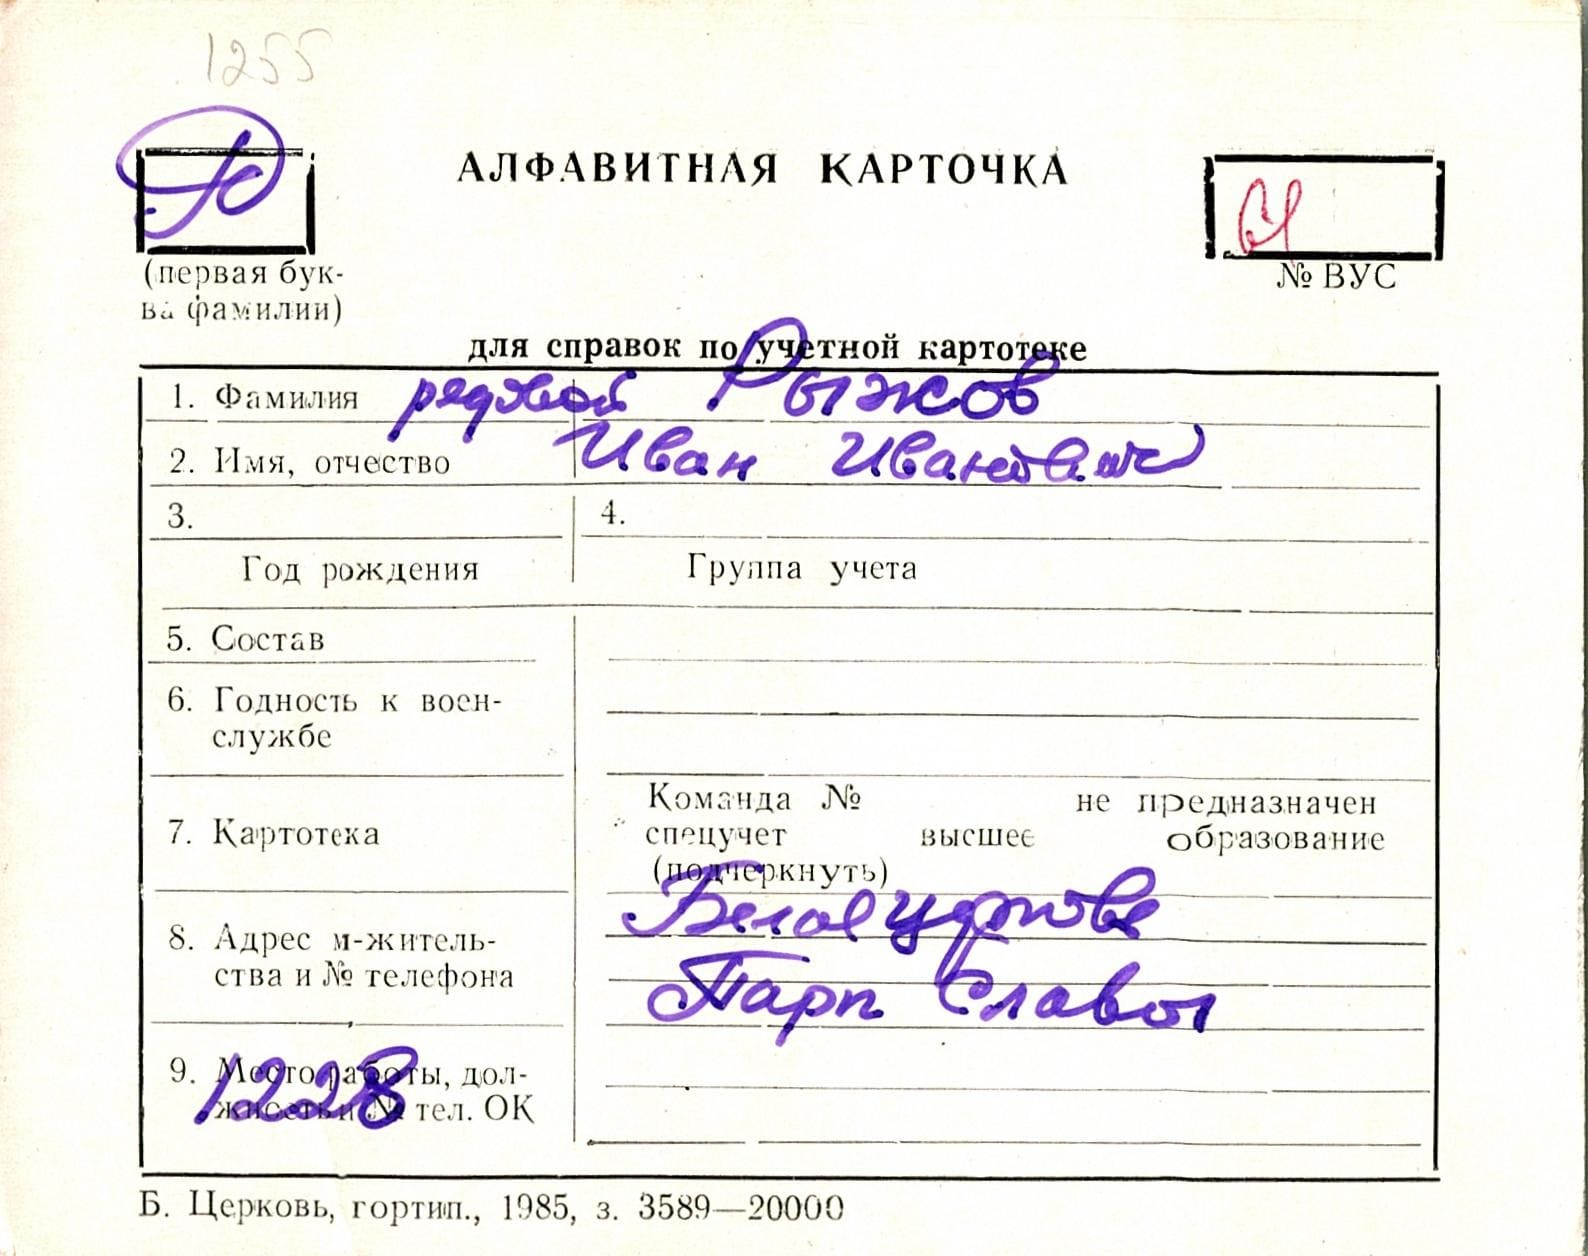 1255
Ю
АЛФАВИТНАЯ КАРТОЧКА
(первая бук-
ва фамилии)
№ ВУС
для справок по учетной картотеке
1. Фамилия рядовой Рыжов
2. Имя, отчество Иван Иванович
3. 4.
Год рождения Группа учета
5. Состав
6. Годность к воен-
службе
7. Картотека
Команда № не предназначен
спецучет высшее образование
(подчеркнуть)
8. Адрес м-житель-
ства и № телефона
Белая Церковь
Парк Славы
9. Место работы, дол-
жность и № тел. ОК
1228
Б. Церковь, гортип., 1985, з. 3589—20000